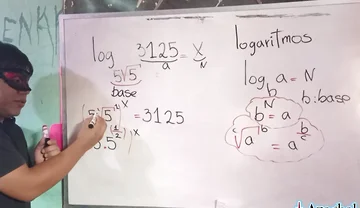 ENK
log 3125 = x
a N
5√5
base
(5√5)ˣ = 3125
5.5^(1/2) x
logaritmos
log a = N
b
bᴺ = a
b: base
ᶜ√aᵇ = a^(b/c)